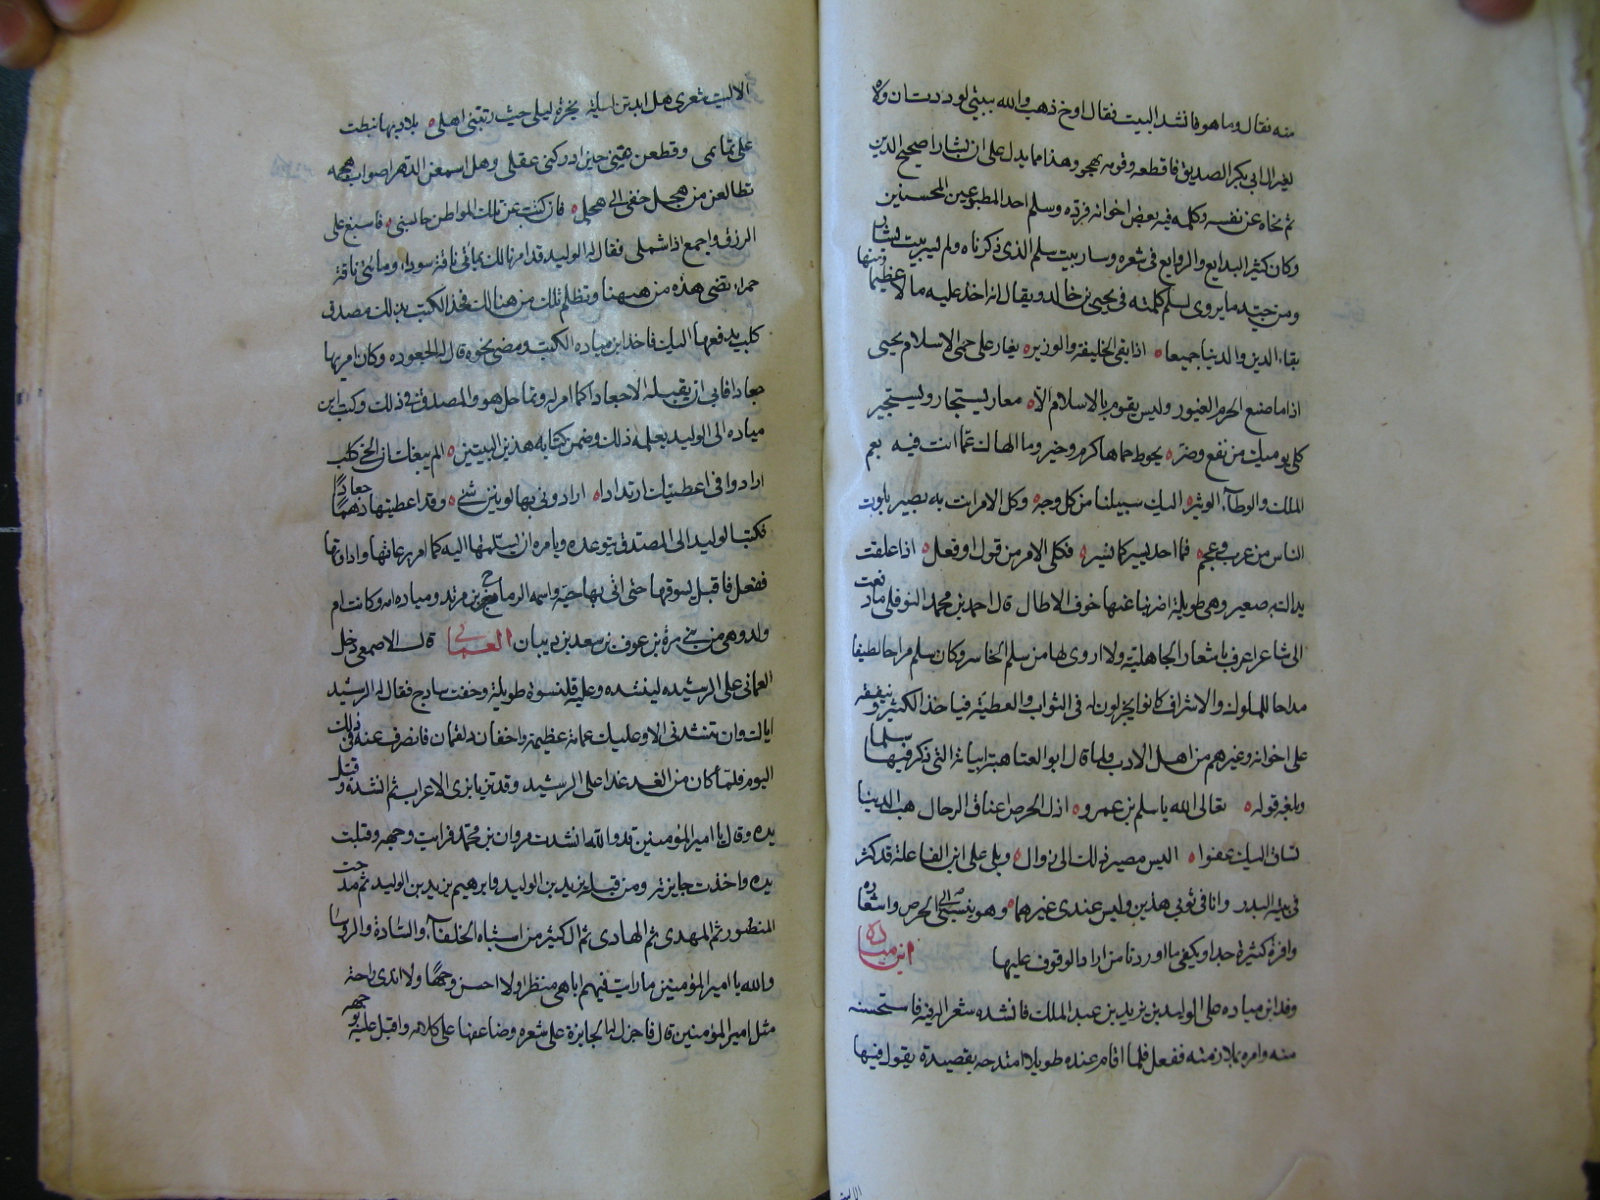 منه فقال وما هو فانشد البيت فقال اوخ ذهب والله ببيتي لوددت ان ولاه
لغير ال ابي بكر الصديق فاقطعه وقومه بهجو وهذا مما يدل على ان بشارا صحيح الدين
ثم نحاه عن نفسه وكلمه فيه بعض اخوانه فرده وسلم احد المطبوعين المحسنين
وكان كثير البدايع والروايع في شعره وسار بيت سلم الذي ذكرناه ولم يسر بيت بشار
ومن جيد ما يروى لسلم كلمته في يحيى بن خالد ويقال انه اخذ عليه مالا عظيما ومنها
بقاء الدين والدنيا جميعا ه اذا بقي الخليفة والوزير ه يغار على حمى الاسلام يحيى
اذا ما ضيع الحرم الغيور وليس يقوم بالاسلام الا ه معار يستجار ويستجير
كلى يوميك من نفع وضر ه يحوط حماهما كرم وخير وما الهاك عما انت فيه نعم
الملك والوطاء الوثير ه اليك سبيلنا من كل وجه ه وكل الامر انت به بصير بلوت
الناس من عرب وعجم ه فما احد يسير كما تسير ه فكل الامر من قول او فعل ه اذا علقت
يداك به صغير وهي طويلة اضربنا عنها خوف الاطال قال احمد بن محمد النوفلي ما دفعت
الى شاعر اعرف باشعار الجاهلية ولا اروى لها من سلم الخاسر وكان سلم مزاحا لطيفا
مداحا للملوك والاشراف كانوا يجزلون له في الثواب والعطية فياخذ الكثير وينفقه
على اخوانه وغيرهم من اهل الادب ولما قال ابو العتاهية ابياته التي ذكر فيها سلما
وبلغه قوله ه تعالى الله يا سلم بن عمرو ه اذل الحرص اعناق الرجال هب الدنيا
تساق اليك عفوا ه اليس مصير ذلك الى زوال ه ويلى على ابن الفاعلة قد كثر
في بيته البدر وانا في ثوبي هذين وليس عندي غيرهما ه وهو ينسبني الى الحرص واشعاره
وافرة كثيرة جدا ويكفي ما اوردنا من اراد الوقوف عليها ابن ميادة
وفد ابن ميادة على الوليد بن يزيد بن عبد الملك فانشده شعر اليه فاستحسنه
منه وامره بملازمته ففعل فلما اقام عنده طويلا امتدحه بقصيدة يقول فيها
الا ليت شعري هل ابيتن ليلة بحرة ليلى حيث ربتني اهلي ه بلاد بها نيطت
على تمائمي وقطعن عني حين ادركني عقلي وهل اسمعن الدهر اصوات هجمه
تطالعن من هجل خفي الى هجل ه فان كنت عن تلك المواطن حابسي ه فاسبغ على
الرزق واجمع اذا شملي فقال له الوليد قد امرنا لك بمائتي ناقة سوداء ومائتي ناقة
حمراء تضي هذه من ههنا وتظلم تلك من هنالك فخذ الكتب بذلك مصدق
كلب يدفعها اليك فاخذ ابن ميادة الكتب ومضى نحوه قال له الجعوده وكان امر بها
جعادا فابى ان يقبله الا جعادا كما امر له وتماحل هو والمصدق في ذلك وكتب ابن
ميادة الى الوليد يعلمه ذلك وضمن كتابه هذين البيتين ه الم يبلغك ان الحي كلب
ارادوا في اعطيتك ارتدادا ه ارادوني بها لونين شتى ه وقد اعطيتها دهما جعادا
فكتب الوليد الى المصدق يتوعده ويامره ان يسلمها اليه كما امر برعائها واداوتها
ففعل فاقبل يسوقها حتى اتى بها حيه واسمه الرماح بن مرثد وميادة امه وكانت ام
ولد وهي من بني مرة بن عوف بن سعد بن ذبيان العماني قال الاصمعي دخل
العماني على الرشيد لينشده وعليه قلنسوة طويلة وخفت ساذج فقال له الرشيد
اياك وان تنشدني الا وعليك عمامة عظيمة وخفان دلقمان فانصرف عنه في ذلك
اليوم فلما كان من الغد غدا على الرشيد وقد تزيا بزي الاعراب ثم انشده وقبل
يده وقال يا امير المؤمنين قد والله انشدت مروان بن محمد فرايت وجهه وقبلت
يده واخذت جايزته ومن قبله يزيد بن الوليد وابرهيم بن يزيد بن الوليد ثم مدحت
المنصور ثم المهدي ثم الهادي ثم الكثير من اشباه الخلفاء والسادة والروسا
والله يا امير المؤمنين ما رايت فيهم ابهى منظرا ولا احسن وجها ولا اندى راحة
مثل امير المؤمنين قال فاجزل له الجايزة على شعره وضاعفها على كلامه واقبل عليه بوجهه